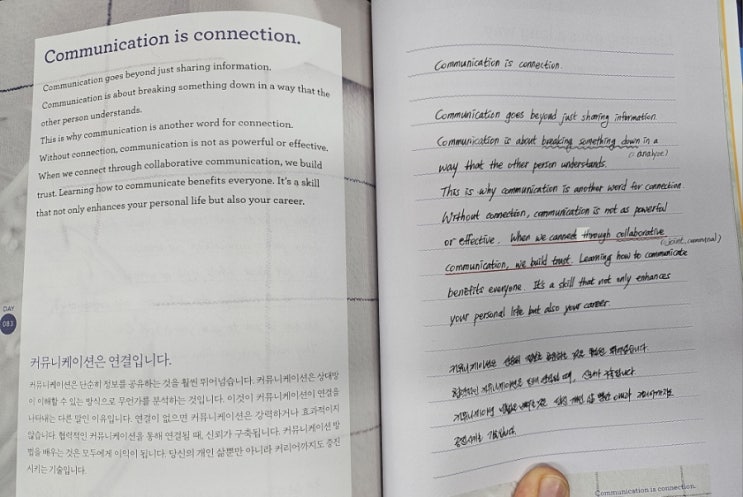 Communication is connection.
Communication goes beyond just sharing information.
Communication is about breaking something down in a way that the
other person understands.
This is why communication is another word for connection.
Without connection, communication is not as powerful or effective.
When we connect through collaborative communication, we build
trust. Learning how to communicate benefits everyone. It's a skill
that not only enhances your personal life but also your career.
DAY
083
커뮤니케이션은 연결입니다.
커뮤니케이션은 단순히 정보를 공유하는 것을 훨씬 뛰어넘습니다. 커뮤니케이션은 상대방
이 이해할 수 있는 방식으로 무언가를 분석하는 것입니다. 이것이 커뮤니케이션이 연결을
나타내는 다른 말인 이유입니다. 연결이 없으면 커뮤니케이션은 강력하거나 효과적이지
않습니다. 협력적인 커뮤니케이션을 통해 연결될 때, 신뢰가 구축됩니다. 커뮤니케이션 방
법을 배우는 것은 모두에게 이익이 됩니다. 당신의 개인 삶뿐만 아니라 커리어까지도 증진
시키는 기술입니다.
Communication is connection.
Communication goes beyond just sharing information.
Communication is about breaking something down in a
(= analyze)
way that the other person understands.
This is why communication is another word for connection.
Without connection, communication is not as powerful
or effective. When we connect through collaborative
communication, we build trust. Learning how to communicate
benefits everyone. It's a skill that not only enhances
your personal life but also your career.
커뮤니케이션은
Communication is connection.